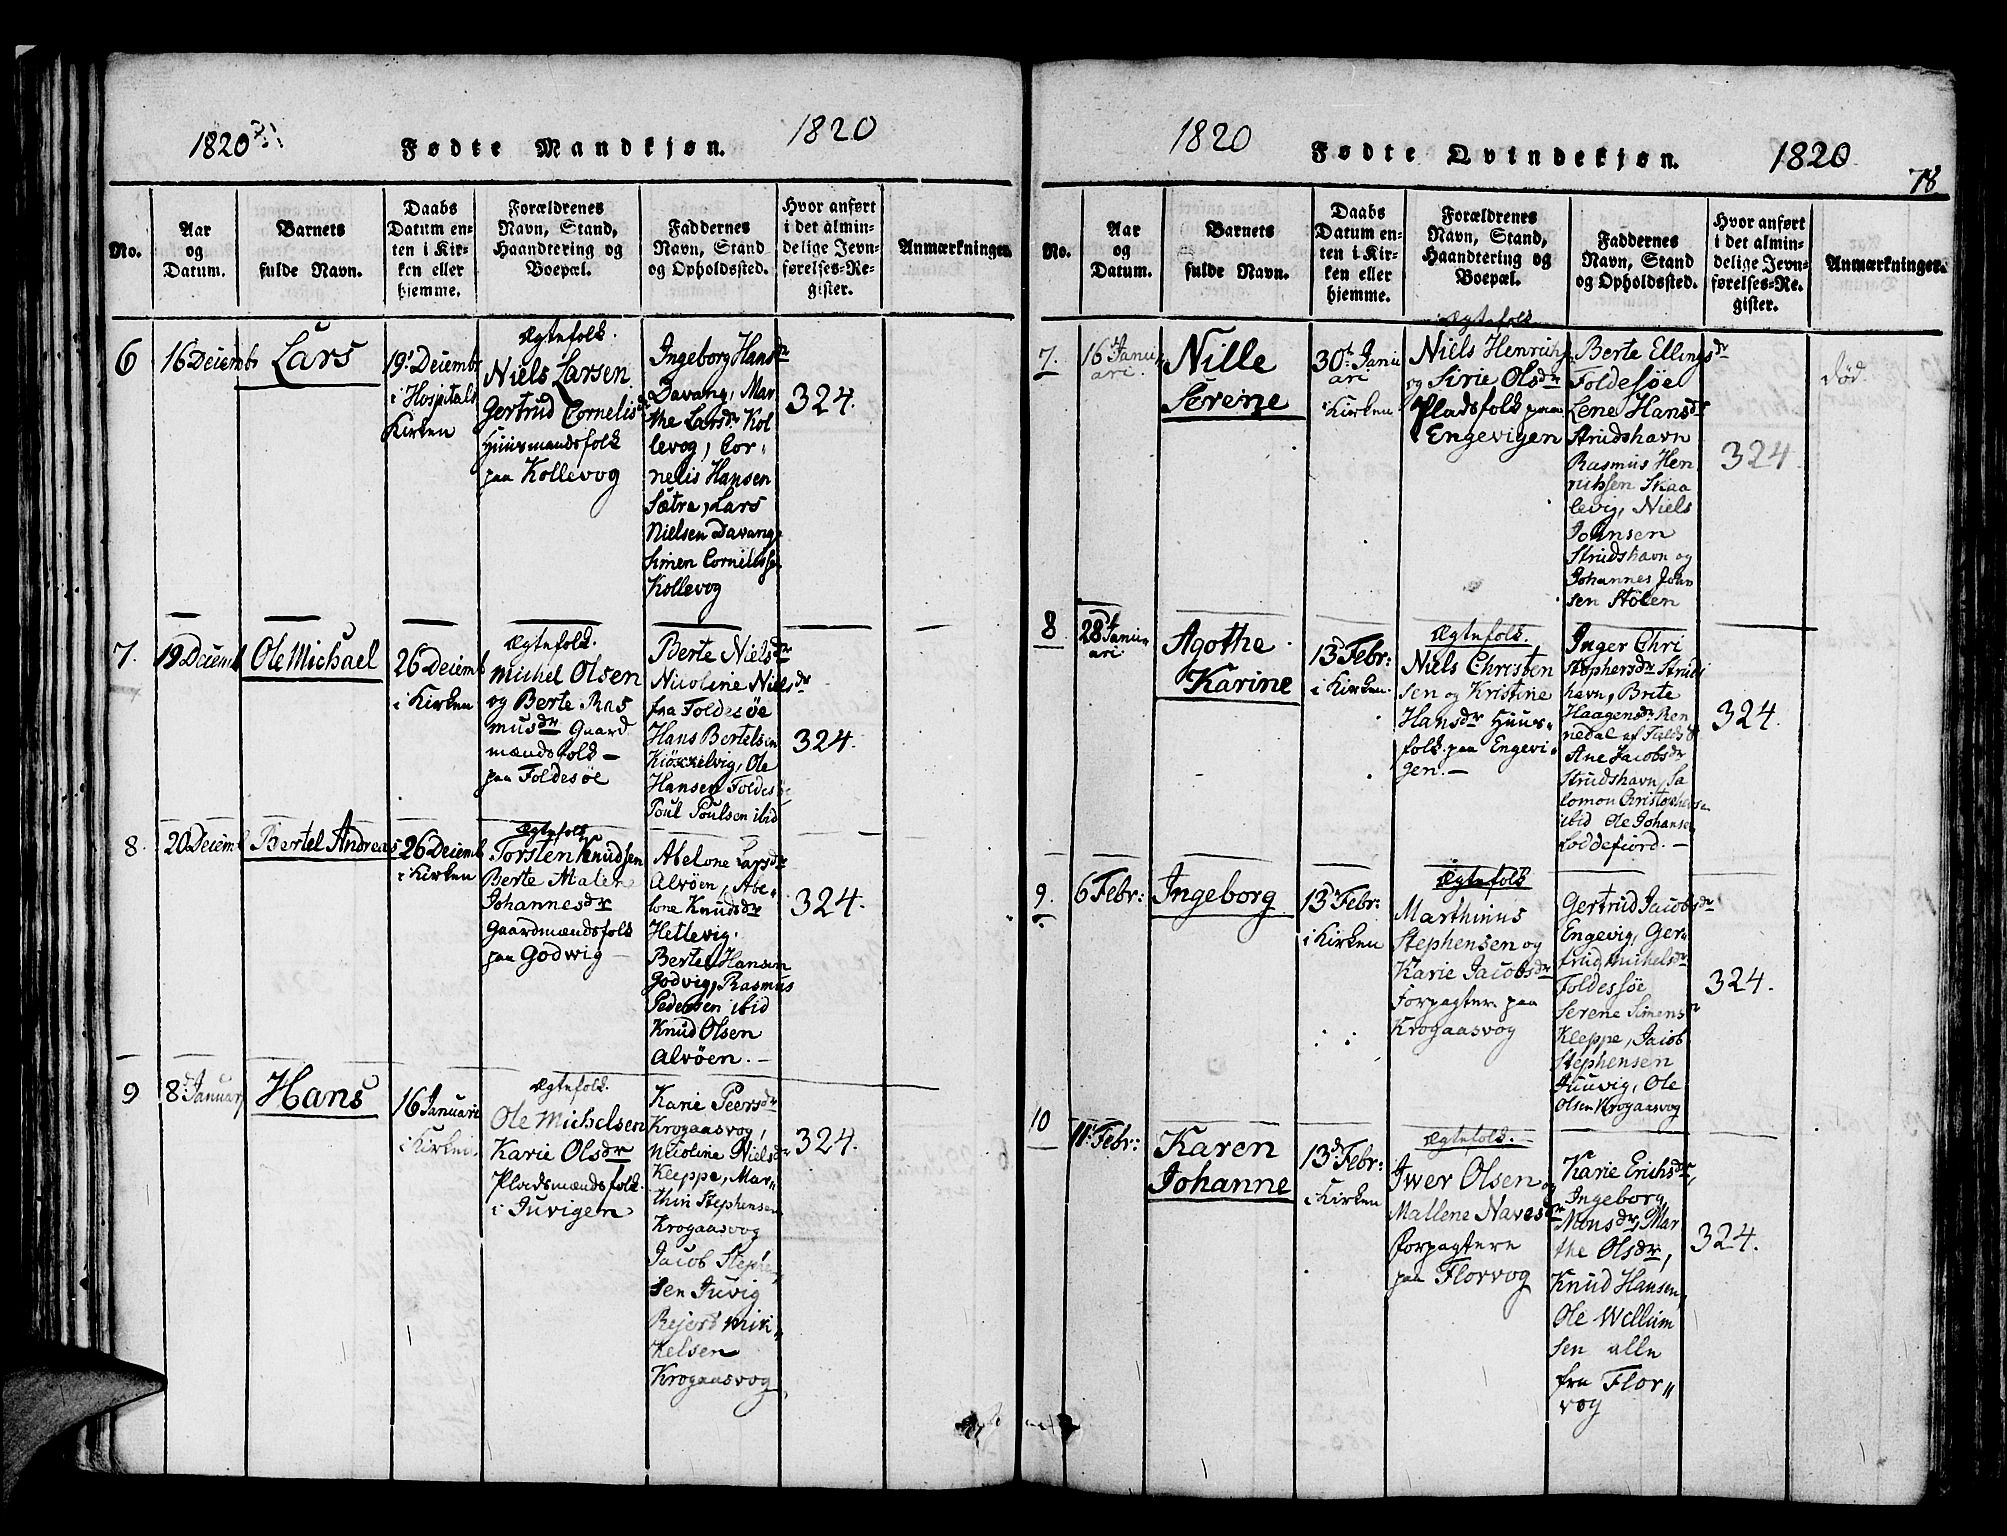 1820
Fødte Mandkjøn.
1820
No.
Aar
og
Datum.
Barnets
fulde Navn.
Daabs
Datum en-
ten i Kir-
ken eller
hjemme.
Forældrenes
Navn, Stand,
Haandtering og
Boepæl.
Faddernes
Navn, Stand
og Opholdssted.
Hvor anført
i det almin-
delige Jevn-
førelses-Re-
gister.
Anmærkninger.
6
16 Decembr
Lars
19' Decembr
i Hospitals
Kirken
Ægtefolk.
Niels Larsen
Gertrud Cornelisdr
Huusmandsfolk
paa Kollevog
Ingeborg Hansdr
Davang, Mar
the Larsdr Kol
levog, Cor-
nelis Hansen
Sætre, Lars
Nielsen Davang
Simen Cornelisse
Kollevog
324.
7.
19 Decemb
Ole Michael
26 Decemb
i Kirken
Ægtefolk.
Michel Olsen
og Berte Ras
musdr Gaard
mændsfolk -
paa Foldesøe
Berte Nielsdr
Nicoline Nielsdr
fra Foldesøe
Hans Bertelsen
Kiökkelvig, Ole
Hansen Foldesøe
Poul Poulsen ibid
324.
8.
20 Decemb
Bertel Andreas
26 Decemb
i Kirken
Ægtefolk
Torsten Knudsen
Berte Malene
Johannesdr
Gaardmændsfolk
paa Godwig -
Abelone Larsdr
Alvöen, Abe-
lone Knudsdr
Hettevig.
Bertel Hansen
Godvig, Rasmus
Pedersen ibid
Knud Olsen
Alvöen. -
324.
9
8' Januar
Hans
16 Januarii
i Kirken
Ægtefolk.
Ole Michelsen
Karie Olsdr
Pladsmændsfolk.
i Juvigen
Karie Peersdr
Krogaasvog,
Nicoline Nielsdr
Kleppe, Mar-
thin Stephensen
Krogaasvog
Jacob Stephe
sen Juvig
Rejord Mik-
kelsen
Krogaasvog
324.
1820
Fødte Qvindekjøn.
1820
78
No.
Aar
og
Datum.
Barnets
fulde Navn.
Daabs
Datum en-
ten i Kir-
ken eller
hjemme.
Forældrenes
Navn, Stand,
Haandtering og
Boepæl.
Faddernes
Navn, Stand
og Opholdssted.
Hvor anført
i det almin-
delige Jevn-
førelses-Re-
gister.
Anmærkninger.
7.
16 Janu
ari
Nille
Serene
30t Janu
ari
i Kirken
Ægtefolk.
Niels Henrichs
og Sirie Olsdr
Pladsfolk paa
Engevigen
Berte Ellingsdr
Foldesøe
Lene Hansdr
Strudshavn
Rasmus Hen
richsen Skaa
levig, Niels
Johnsen
Strudshavn og
Johannes John
sen Stölen
324.
død.
8
28 Janu-
ari
Agothe
Karine
13 Febr:
i Kirken.
Ægtefolk.
Niels Christen
sen og Kristine
Hansdr Huus-
folk paa Engevi-
gen. -
Inger Chri
stophersdr Struds
havn, Brite
Haagensdr Ren
nedal af
Ane Jacobsdr
Strudshavn, Sa
lomon Christophersen
ibid Ole Johansen
Loddefiord. -
324.
9.
6 Febr:
Ingeborg
13 Febr:
i Kirken
Ægtefolk
Marthinus
Stephensen og
Karie Jacobsdr
Forpagter paa
Krogaasvog
Gertrud Jacobsdr
Engevig, Ger-
trud Michelsdr
Foldessøe
Serene Simensdr
Kleppe, Jacob
Stephensen
Juuvig, Ole
Olsen Krogaasvog
324.
10
11 Febr:
Karen
Johanne
13 Febr:
i Kirken
Ægtefolk. -
Iwer Olsen og
Mallene Navesdr
Forpagtere
paa Florvog
Karie Erichsdr,
Ingeborg
Monsdr, Mar
the Olsdr,
Knud Hansen,
Ole Wellum
sen alle
fra Flor-
vog
324.